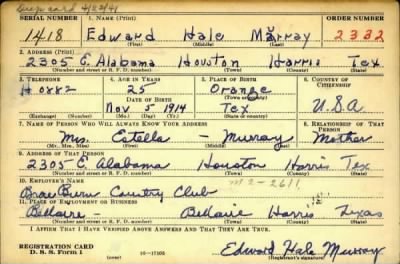 Dup card 4/23/41
SERIAL NUMBER 1. NAME (Print) ORDER NUMBER
1418 Edward Hale Murray 2332
(First) (Middle) (Last)
2. ADDRESS (Print)
2305 E. Alabama Houston Harris Tex
(Number and street or R. F. D. number) (Town) (County) (State)
3. TELEPHONE 4. AGE IN YEARS 5. PLACE OF BIRTH 6. COUNTRY OF CITIZENSHIP
H 0882 25 Orange
DATE OF BIRTH (Town or county)
Nov 5 1914 Tex U.S.A
(Exchange) (Number) (Mo.) (Day) (Yr.) (State or country)
7. NAME OF PERSON WHO WILL ALWAYS KNOW YOUR ADDRESS 8. RELATIONSHIP OF THAT PERSON
Mrs. Estella - Murray Mother
(Mr., Mrs., Miss) (First) (Middle) (Last)
9. ADDRESS OF THAT PERSON
2305 E. Alabama Houston Harris Tex
(Number and street or R. F. D. number) (Town) (County) (State)
10. EMPLOYER'S NAME
Brae Burn Country Club M 2-2611
11. PLACE OF EMPLOYMENT OR BUSINESS
Bellaire - Bellaire Harris Texas
(Number and street or R. F. D. number) (Town) (County) (State)
I AFFIRM THAT I HAVE VERIFIED ABOVE ANSWERS AND THAT THEY ARE TRUE.
REGISTRATION CARD
D. S. S. Form 1 16-17105 Edward Hale Murray
(Registrant's signature)